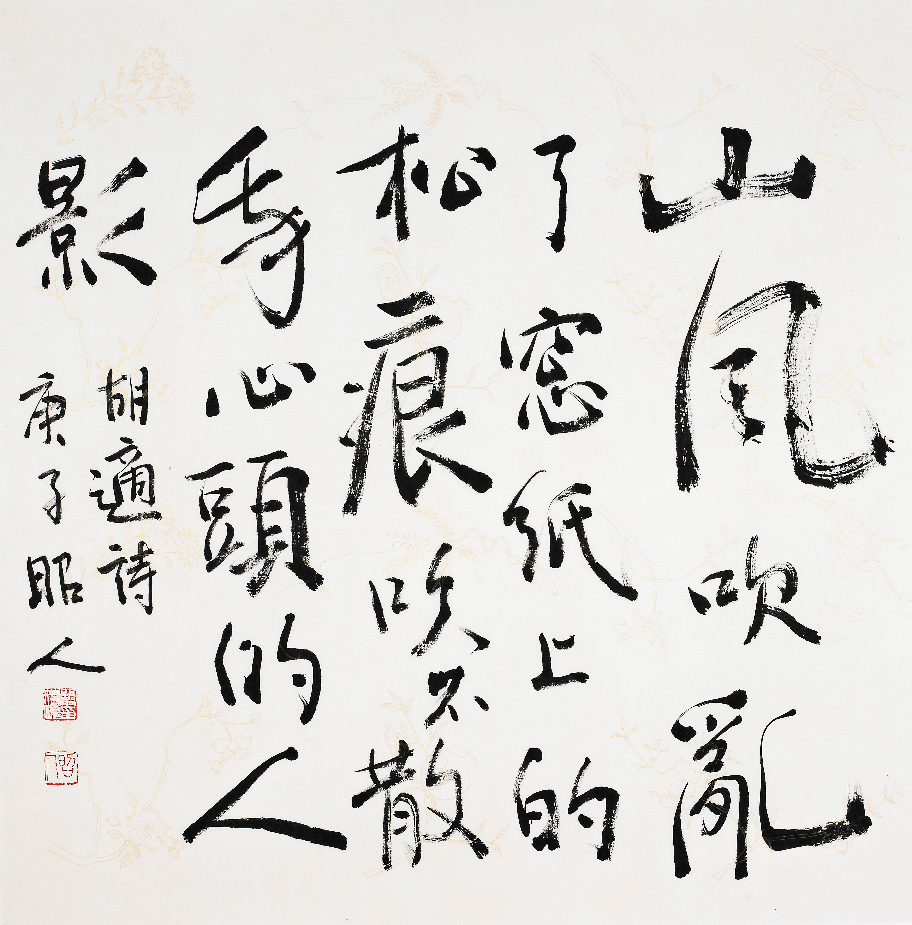 山風吹亂
了窓紙上的
松痕吹不散
我心頭的人
影
胡適詩
庚子昭人